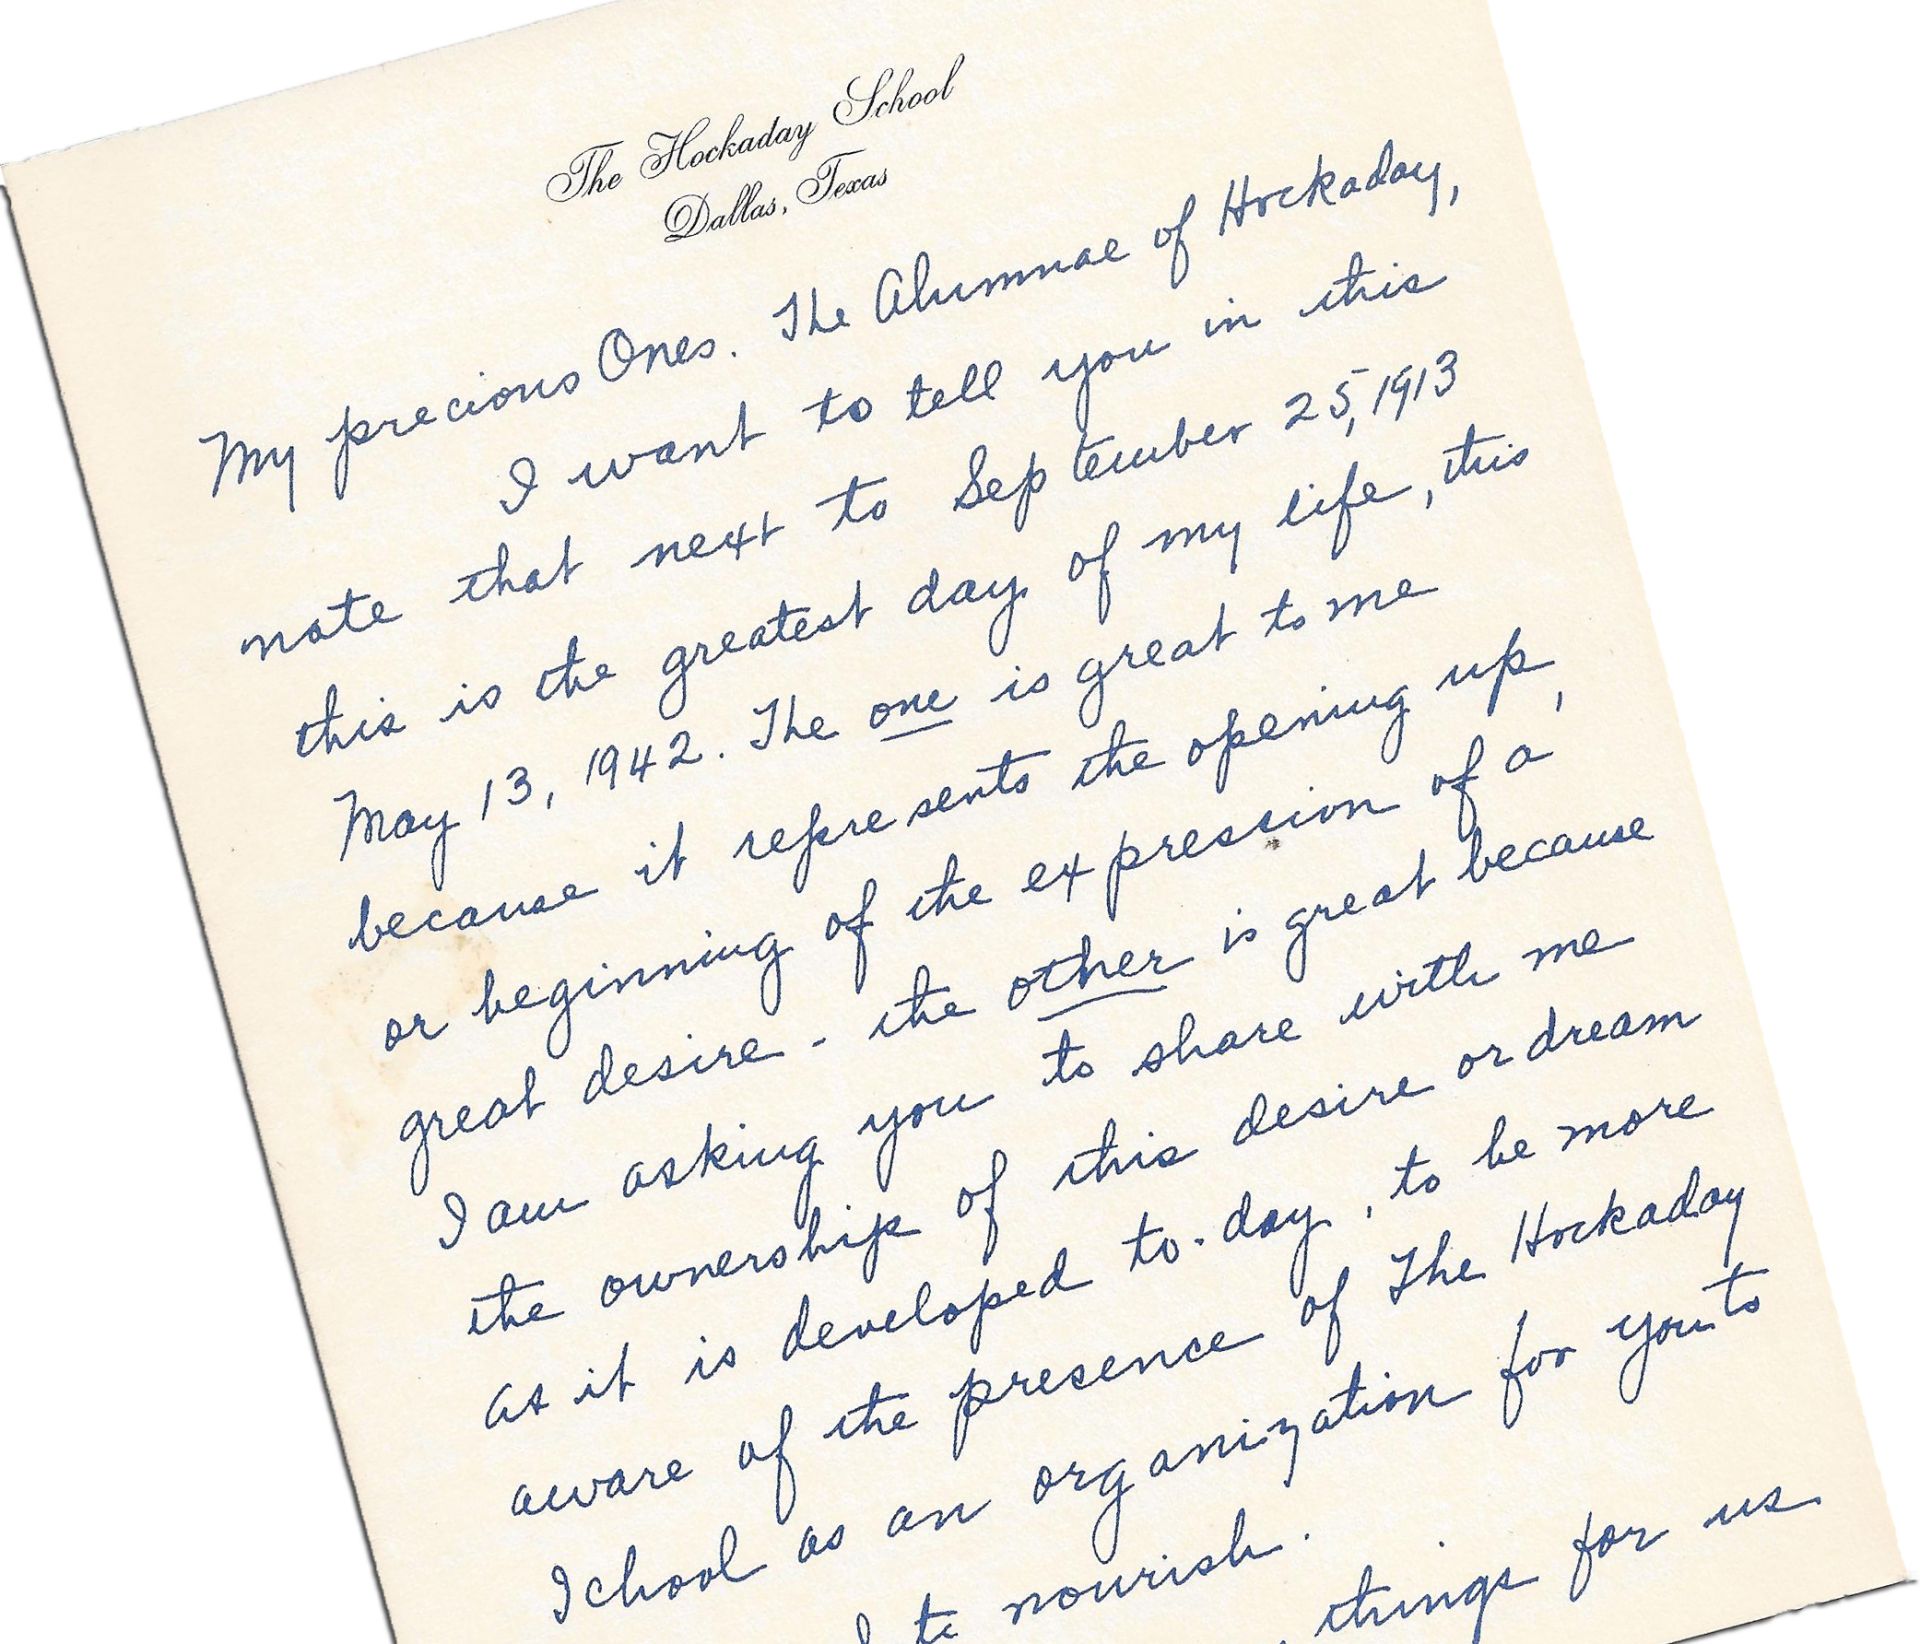 The Hockaday School
Dallas, Texas
My precious Ones. The Alumnae of Hockaday,
I want to tell you in this
note that next to September 25, 1913
this is the greatest day of my life, this
May 13, 1942. The one is great to me
because it represents the opening up,
or beginning of the expression of a
great desire - the other is great because
I am asking you to share with me
the ownership of this desire or dream
as it is developed to-day, to be more
aware of the presence of The Hockaday
School as an organization for you to
to nourish.
things for us